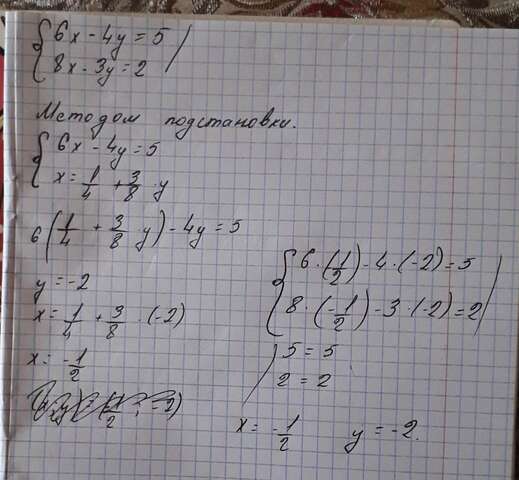 6x - 4y = 5
8x - 3y = 2
Методом подстановки.
6x - 4y = 5
x = 1/4 + 3/8 · y
6(1/4 + 3/8 · y) - 4y = 5
y = -2
x = 1/4 + 3/8 · (-2)
x = -1/2
6 · (1/2) - 4 · (-2) = 5
8 · (-1/2) - 3 · (-2) = 2
5 = 5
2 = 2
x = -1/2 y = -2.